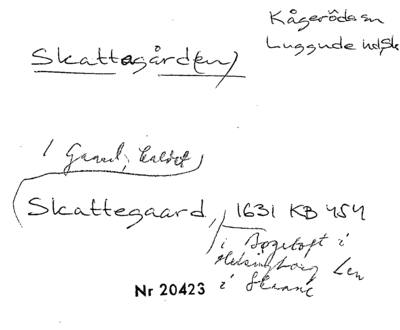 Kågeröds sn
Luggude hd, Sk
Skattegård(en)
1 Gaard, kaldet
Skattegaard, 1631 KB 454
i Bøgetoft i
Helsingborg Len
i Skaane
Nr 20423